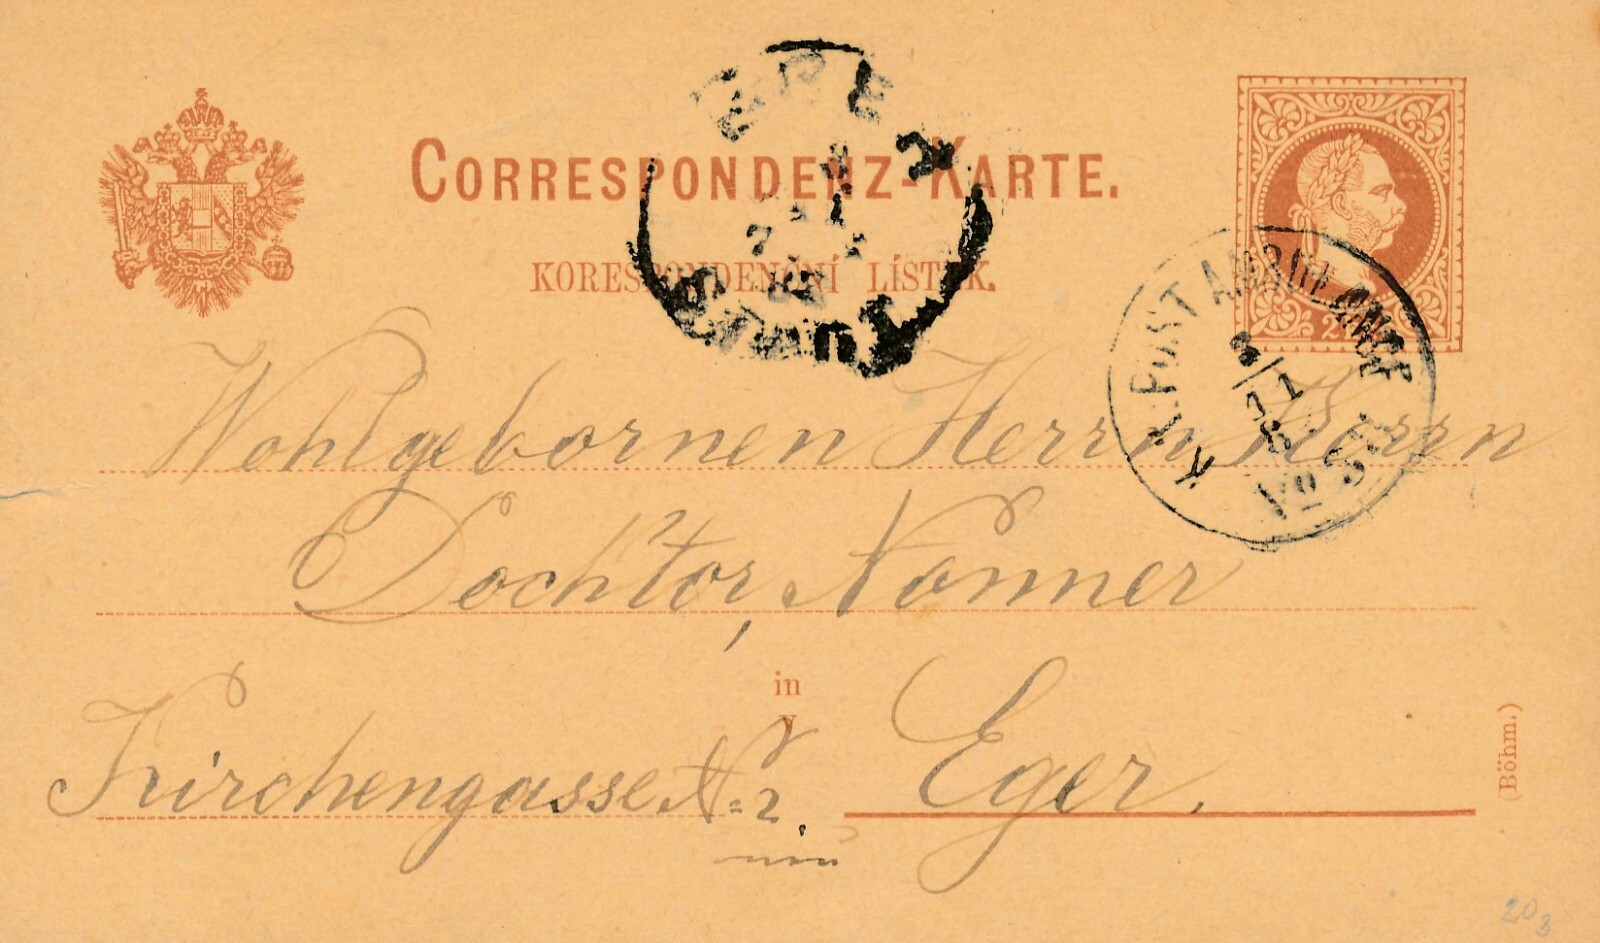 CORRESPONDENZ-KARTE.
KORESPONDENČNÍ LÍSTEK.
EGER
STADT
K. K. POST AMBULANCE
3
11
No
2
Wohlgebornen Herrn Herrn
Dochtor, Nonner
in
v
Kirchengasse No 2. Eger.
(Böhm.)
203